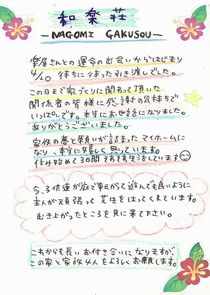 和楽荘
-NAGOMI GAKUSOU-
さんとの運命の出会いからはじまり
4/。待ちに待った引き渡しでした。
この日まで家づくりに関わって頂いた
関係者の皆様に感謝の気持ちで
いっぱいです。本当にお世話になりました。
ありがとうございました。
家族の夢と願いが詰まったマイホームに
なり、本当に嬉しく思っています。
住み始めて3日間ですが生活をしています
今、子供達が庭で寝ころがって遊んでも良いように
主人が頑張って芝生をはってくれています。
出き上がったところを見に来て下さい。
これからも長いお付き合いになりますが
この家と家族4人をよろしくお願いします。